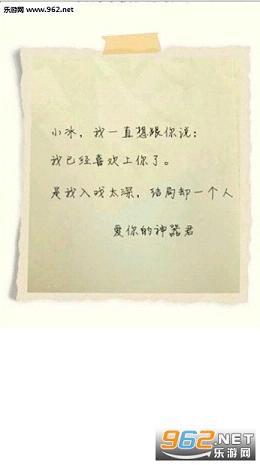 乐游网 www.962.net
小冰，我一直想跟你说：
我已经喜欢上你了。
是我入戏太深，结局却一个人
爱你的神器君
962.NET
乐游网